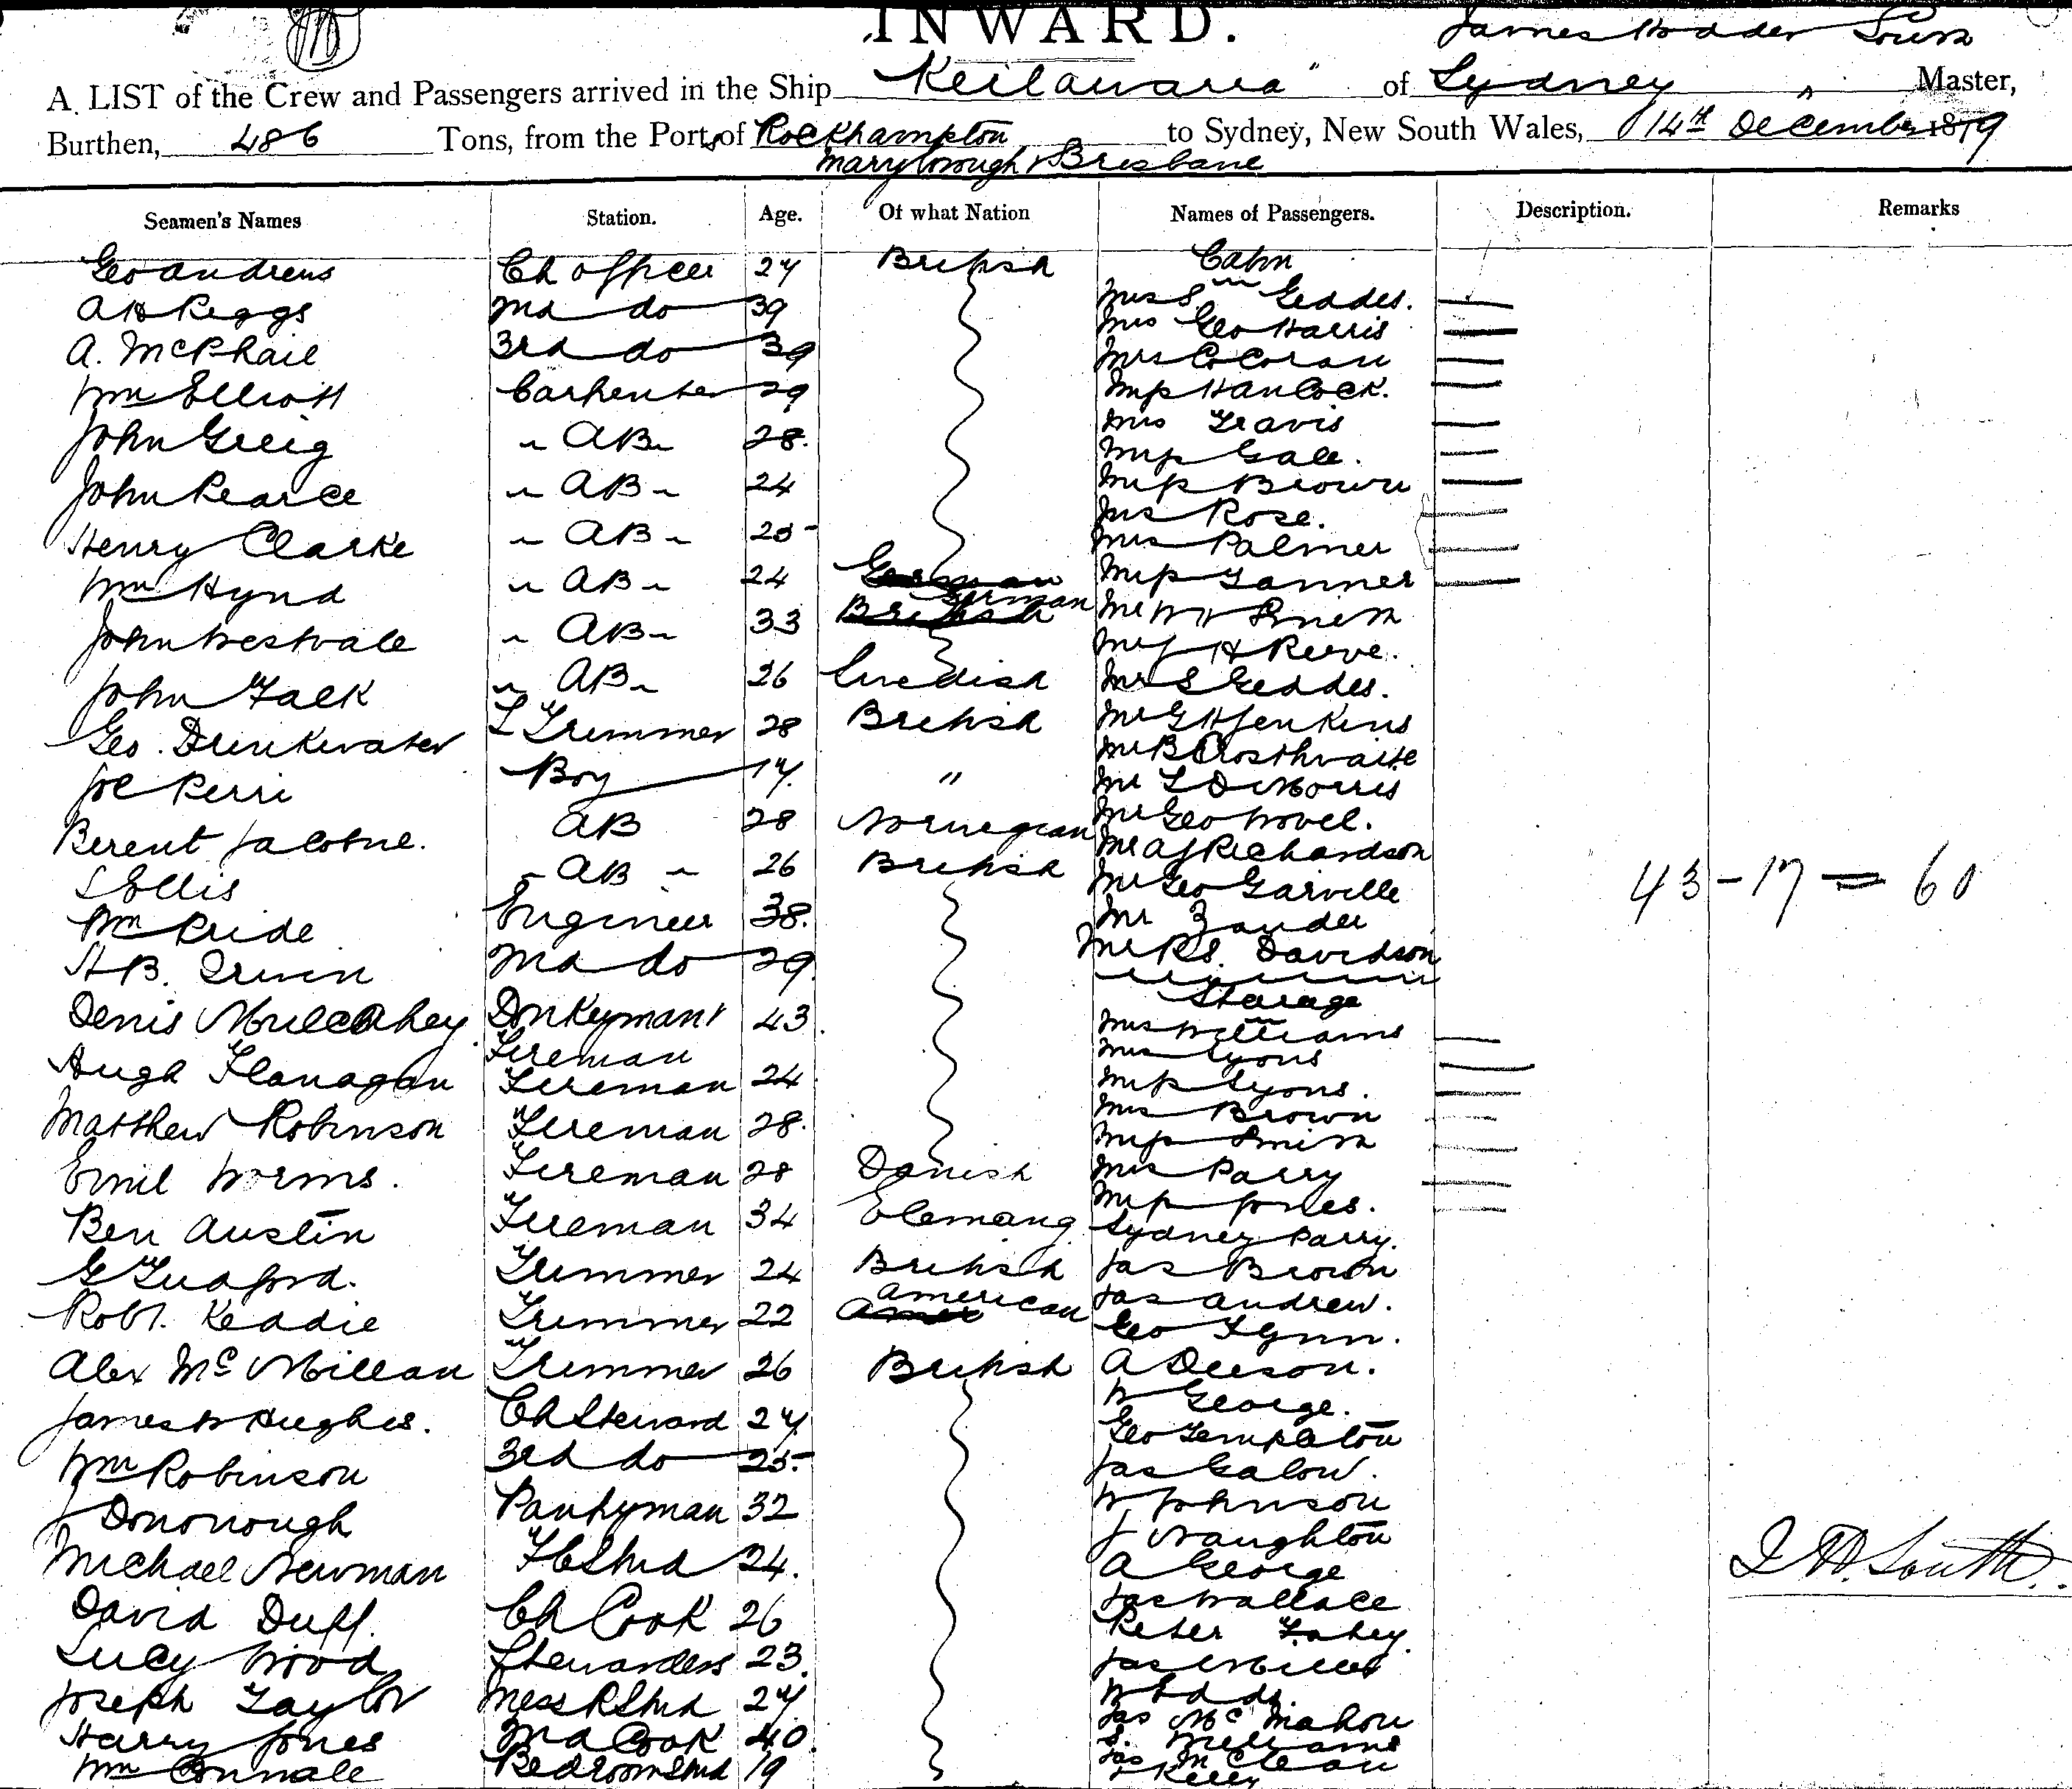 INWARD.
James Hodder South
A LIST of the Crew and Passengers arrived in the Ship "Keilawarra" of Sydney Master,
Burthen, 486 Tons, from the Ports of Rockhampton to Sydney, New South Wales, 14th December 1879
Maryborough & Brisbane
Seamen's Names Station. Age. Of what Nation Names of Passengers. Description. Remarks
Geo Andrews Ch officer 27 British Cabin
A H Peggs 2nd do 39 Mrs S. Geddes.
Mrs Geo Harris
A. McPhail 3rd do 39 Mrs Cocoran
Wm Elliott Carpenter 29 Miss Hancock.
Mrs Travis
John Greig " AB " 28. Miss Gale.
John Pearce " AB " 24 Miss Brown
Mrs Rose.
Henry Clarke " AB " 25 Mrs Palmer
Wm Hynd " AB " 24 German Miss Tanner
John Westvale " AB " 33 British German Mr W H Smith
Mr J H Reeve.
John Falk " AB " 26 Swedish Mr S Geddes.
Geo. Drinkwater L Trimmer 28 British Mr G H Jenkins
Mr B Crosthwaite
Joe Perri Boy 17. " Mr L D Morris
Berent Jacobne. AB 28 Norwegian Mr Geo Wovel.
Mr A J Richardson
S Ellis " AB " 26 British Mr Geo Garville
Wm Pride Engineer 38. Mr Zander
43 - 17 = 60
H B. Irwin 2nd do 29 Mr R S. Davidson
Steerage
Denis Mulcahey Donkeyman & 43. Mrs Williams
Fireman Mrs Lyons
Hugh Flanagan Fireman 24 Miss Lyons.
Matthew Robinson Fireman 28. Mrs Brown
Miss Smith
Emil Worms. Fireman 28 Danish Mrs Parry
Miss Jones.
Ben Austin Fireman 34 Sydney Parry.
G Tudford. Trimmer 24 British Jas Brown
Robt. Keddie Trimmer 22 American Jas Andrew.
Geo Flynn.
Alex McMillan Trimmer 26 British A Deeson.
James W Hughes. Ch Steward 27 W George.
Geo Templeton
Wm Robinson 3rd do 25. Jas Galow.
J Dononough Pantryman 32 W Johnson
J Naughton
Michael Newman F C Stwd 24. A George
J H. South.
David Duff. Ch Cook 26 Jas Wallace
Peter Fahey.
Lucy Wood Stewardess 23. Jas Miller
Joseph Taylor Mess R Stwd 27. W Edds.
Jas McMahon
Harry Jones 2nd Cook 40. S. Williams
Wm Connale Bedroom Stwd 19 Jas McClean
Kelly